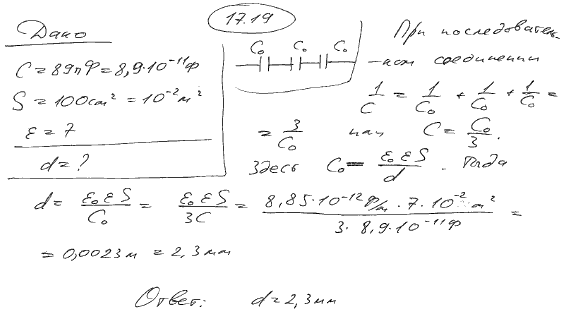 17.19
Дано
C = 89пФ = 8,9·10⁻¹¹ф
S = 100см² = 10⁻²м²
ε = 7
d = ?
C₀ C₀ C₀
При последователь-
-ном соединении
1/C = 1/C₀ + 1/C₀ + 1/C₀ =
= 3/C₀ или C = C₀/3.
Здесь C₀ = ε₀εS/d. Тогда
d = ε₀εS/C₀ = ε₀εS/3C = 8,85·10⁻¹²Ф/м·7·10⁻²м²/3·8,9·10⁻¹¹ф =
= 0,0023м = 2,3мм
Ответ: d = 2,3мм